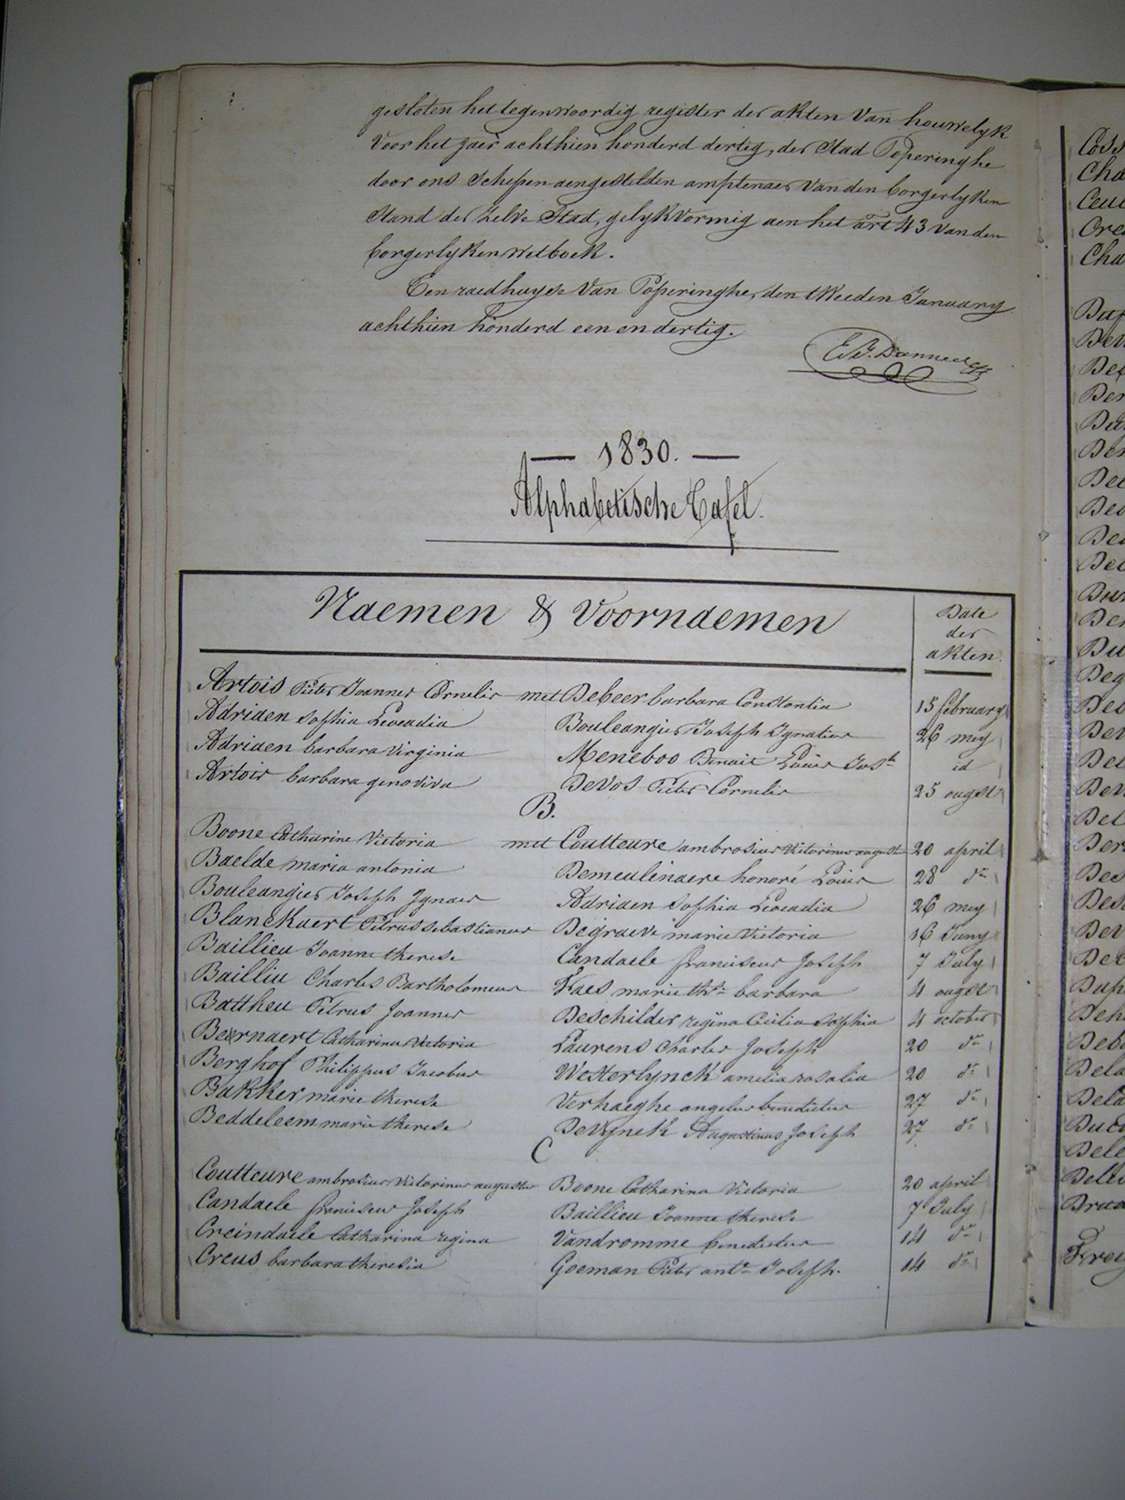 gesloten het tegenwoordig register der akten van houwelyk
voor het jaer achthien honderd dertig, der Stad Poperinghe
door ons Schepen aengestelden amptenaer van den borgerlyken
Stand der zelve Stad, gelykvormig aen het art 43 van den
borgerlyken wetboek.
Ten raedhuyse van Poperinghe, den tweeden January
achthien honderd een en dertig.
— 1830. —
Alphabetische Tafel.
Naemen & Voornaemen
Date
der
akten
Artois Pieter Joannes Cornelis met Debeer barbara Constantia 15 february
Adriaen Sophia Leocadia Bouleangier Joseph Ignatius 26 mey
Adriaen barbara Virginia Meneboo Benoit Louis Josh id
Artois barbara genoviva DeVos Pieter Cornelis 25 ougst
B.
Boone Catharine Victoria met Coutteure ambrosius Victorinus auguste 20 april
Baelde maria antonia Demeulinaere honoré Louis 28 do
Bouleangier Joseph Ignace Adriaen Sophia Leocadia 26 mey
Blanckaert Petrus sebastianus Degraeve marie Victoria 16 Juny
Baillieu Joanne therese Candaele franciscus Joseph 7 July
Bailliu Charles Bartholomeus Faes marie thse barbara 4 ougst
Battheu Petrus Joannes Deschilder regina Cicilia Sophia 4 october
Beernaert Catharina Victoria Laurens Charles Joseph 20 do
Berghof Philippus Jacobus Westerlynck amelia rosalia 20 do
Bakker marie therese Verhaeghe angelus benedictus 27 do
Beddeleem marie therese Devynck Augustinus Joseph 27 do
C
Coutteure ambrosius Victorinus auguste Boone Catharina Victoria 20 april
Candaele franciscus Joseph Baillieu Joanne therese 7 July
Creindaele Catharina regina Vandromme benedictus 14 do
Creus barbara theresia Goeman Pieter ante Joseph. 14 do